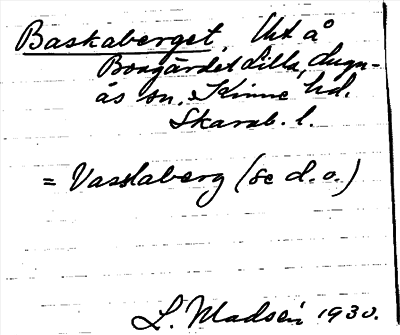 Baskaberget. Utt å
Borgärdet Lilla, Lugn-
ås sn. Kinne hd.
Skarab. l.
= Vasslaberg (se d. o.)
L. Madsén 1930.